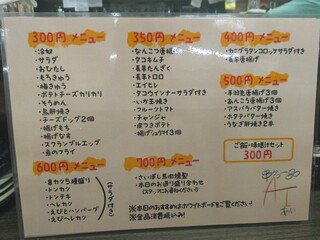 300円 メニュー
・冷奴
・サラダ
・おひたし
・もろきゅう
・梅きゅう
・ポテトチーズカリカリ
・そうめん
・馬肝焼き
・チーズドッグ2個
・揚げもち
・揚げなす
・スクランブルエッグ
・魚のフライ
350円 メニュー
・なんこつ唐揚げ
・タコキムチ
・若芽たんざく
・若芽トロロ
・エイヒレ
・タコウインナーサラダ付き
・いか玉焼き
・フルーツトマト
・チャンジャ
・皮つきポテト
・揚げシュウマイ3個
400円 メニュー
・カニグラタンコロッケサラダ付き
・若芽唐揚げ
500円 メニュー
・手羽先唐揚げ3個
・あんこう唐揚げ3個
・アスパラバター焼き
・ホタテバター焼き
・うなぎ肝焼き2本
ご飯・味噌汁セット
300円
600円 メニュー
・串カツ5種盛り
・トンカツ
・トンテキ
・ヘレカツ
・えびとハンバーグ
・えびヘレカツ
(サラダ付き)
700円 メニュー
・さいぼし馬肉燻製
・本日のお造り盛り合わせ
(スタッフにお尋ねください)
※本日のおすすめはホワイトボードをご覧ください
※全品消費税込み